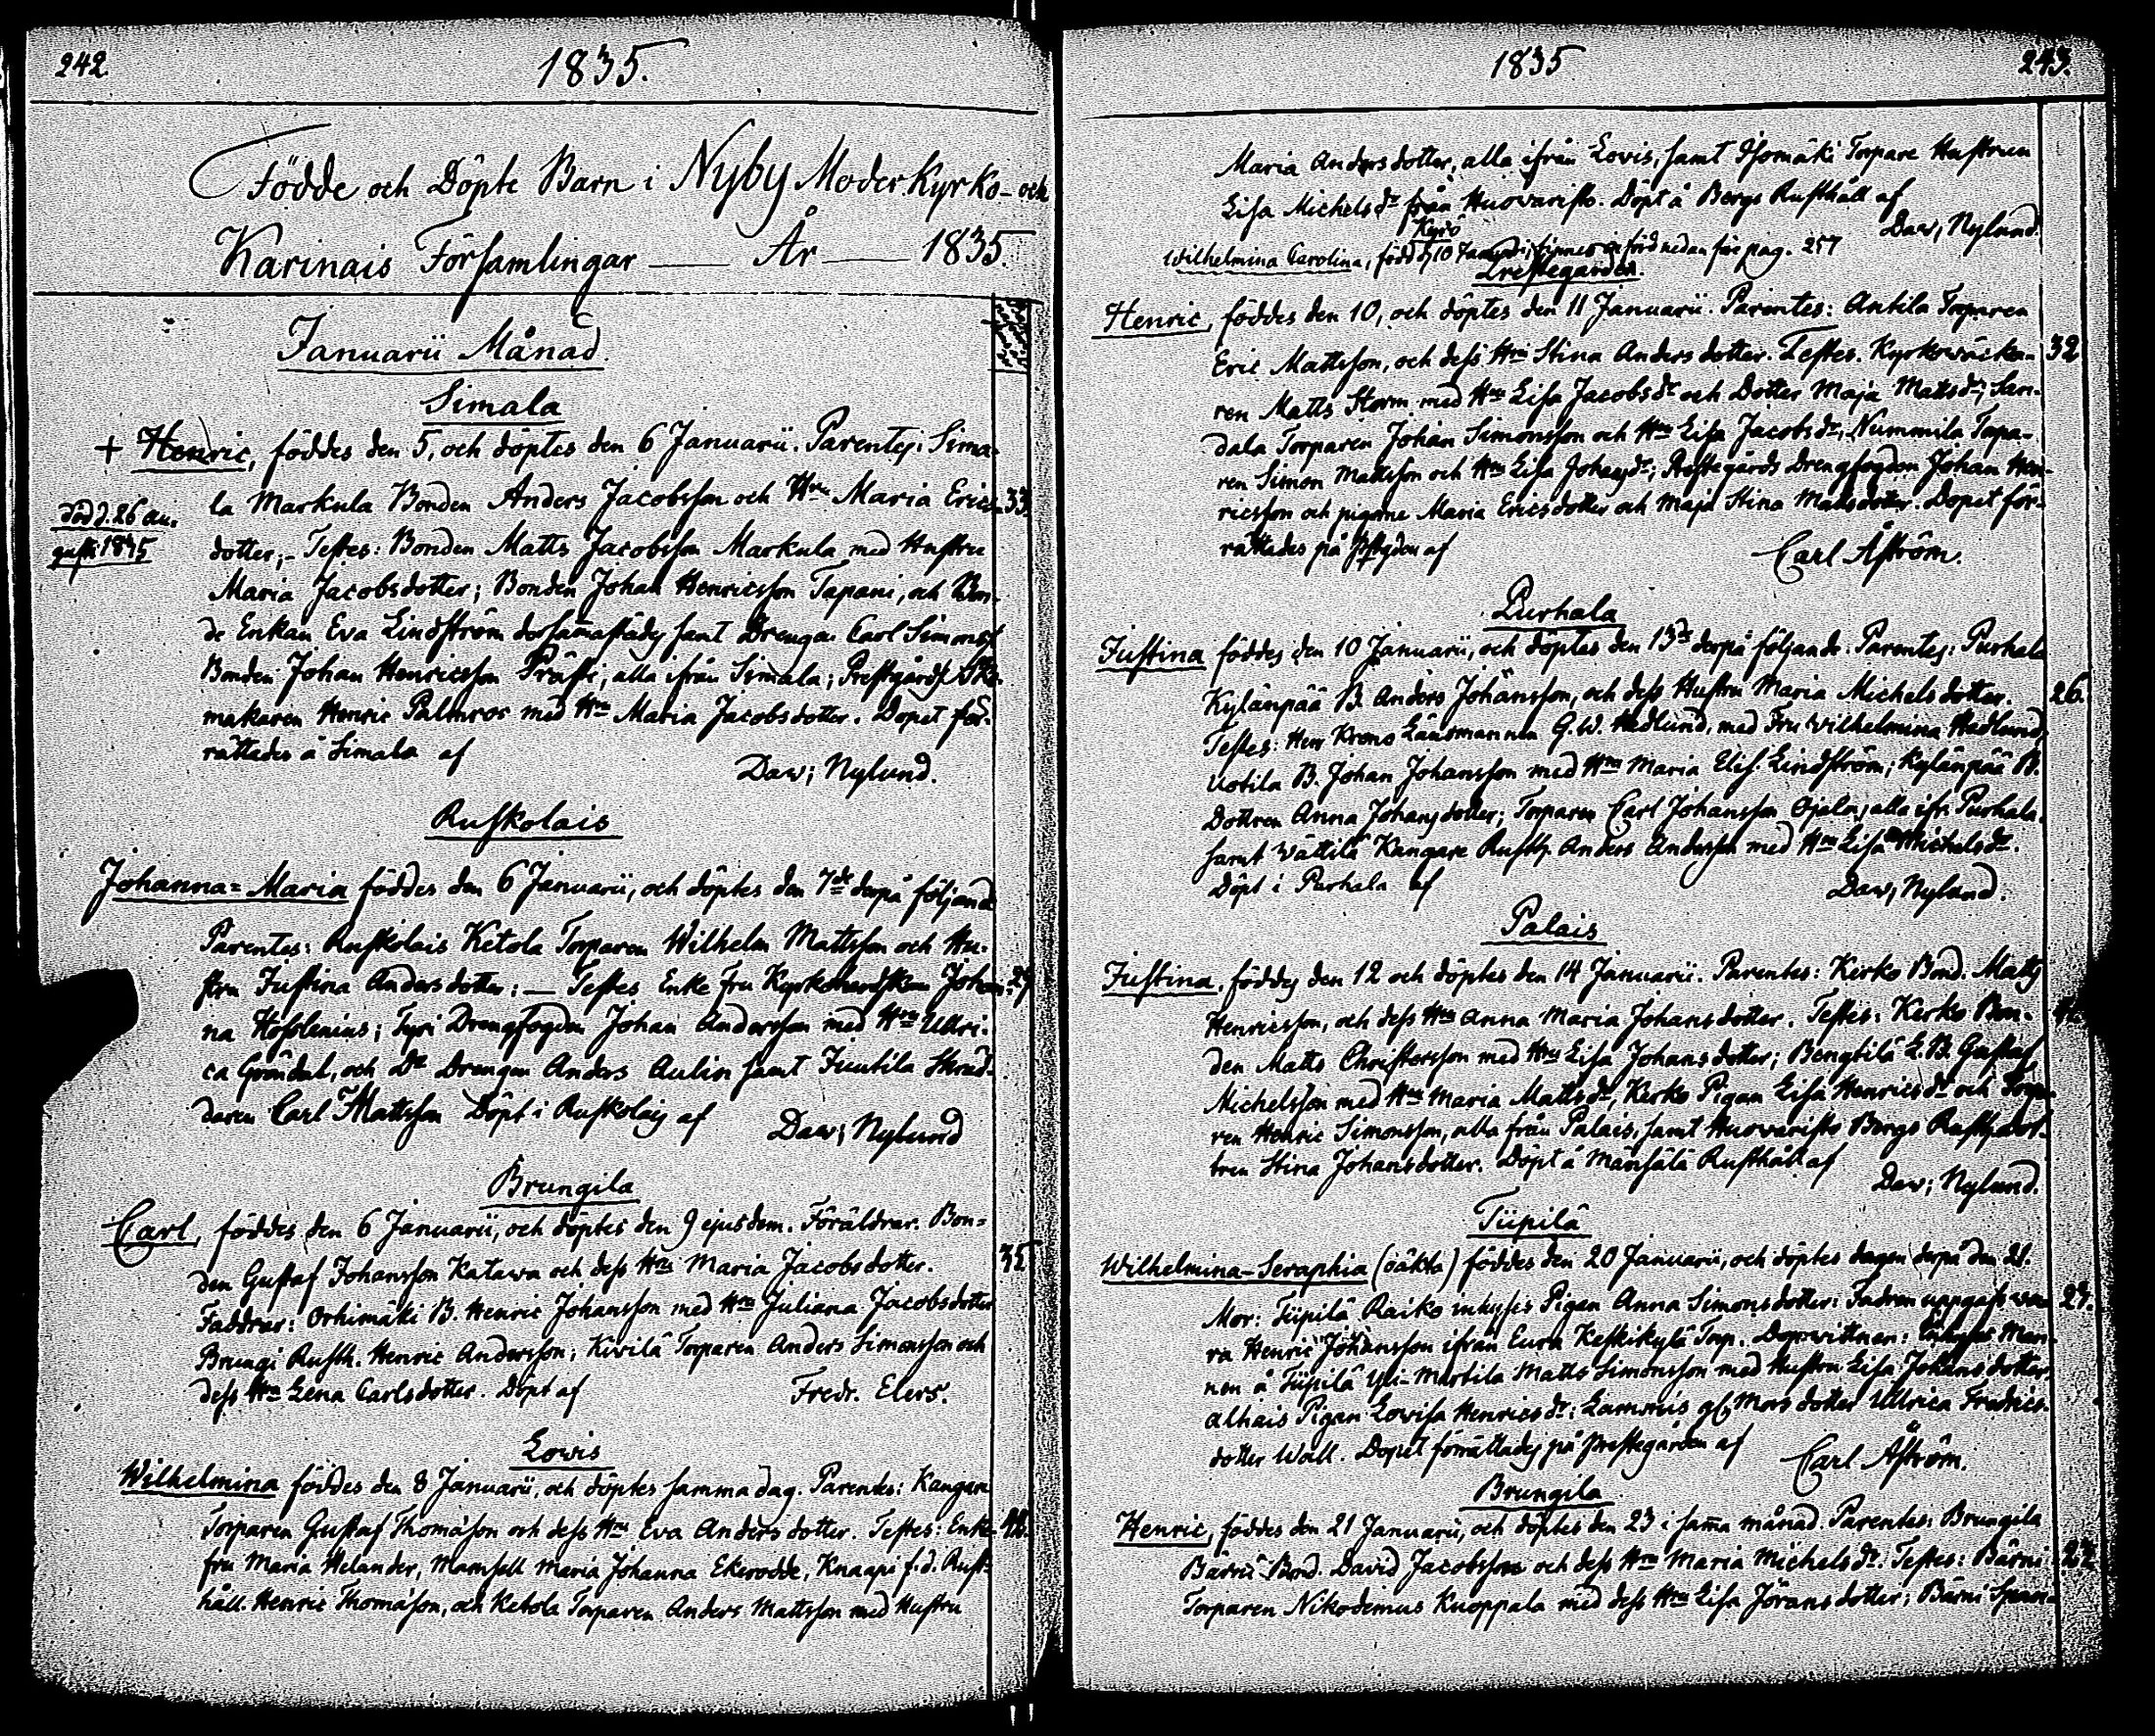 242.
1835.
Födde och Döpte Barn i Nyby Moder Kyrko- och
Karinais Församlingar — År — 1835.
Januarii Månad.
Simala
+ Henric, föddes den 5, och döptes den 6 Januarii. Parentes: Sima-
la Markula Bonden Anders Jacobsson och Hru Maria Erics- 33.
död d. 26 au-
gusti 1835
dotter; - Testes: Bonden Matts Jacobsson Markula med Hustru
Maria Jacobsdotter; Bonden Johan Henricsson Tapani, och Bon-
de Enkan Eva Lindström dersammastädes samt Drengar Carl Simonss
Bonden Johan Henricsson Prästi, alla ifrån Simala; Prestgårds Sko-
makaren Henric Palmroos med Hru Maria Jacobsdotter. Dopet för-
rättades å Simala af
Dav; Nylund.
Ruskolais
Johanna=Maria föddes den 6 Januarii, och döptes den 7de derpå följande
Parentes: Ruskolais Ketola Torparen Wilhelm Mattsson och Hu-
stru Justina Andersdotter: — Testes Enke Fru Kyrkoherdskan Johan- 29
na Hosslenius; Tyri Drengfogden Johan Andersson med Hru Ullri-
ca Gröndal, och Dto Drengen Anders Aulin samt Juutila Skräd-
daren Carl Mattsson Döpt i Ruskolais af
Dav; Nylund
Brungila
Carl, föddes den 6 Januarii, och döptes den 9 ejusdem. Föräldrar. Bon-
den Gustaf Johansson Katawa och dess Hru Maria Jacobsdotter. 35
Faddrar: Orhimäki B. Henric Johansson med Hru Juliana Jacobsdotter
Brungi Rusth. Henric Andersson; Kivilä Torparen Anders Simonsson och
dess Hru Lena Carlsdotter. Döpt af
Fredr. Elers.
Lovis
Wilhelmina föddes den 8 Januarii, och döptes samma dag. Parentes: Kangare
Torparen Gustaf Thomasson och dess Hru Eva Andersdotter. Testes: Enke-
fru Maria Helander, Mamsell Maria Johanna Ekerodde, Knaapi f.d. Rust-
håll. Henric Thomasson, och Ketola Torparen Anders Mattsson med Hustru
1835
243.
Maria Andersdotter, alla ifrån Lovis, samt Isomäki Torpare Hustrun
Lisa Michelsdr från Huovaristo. Döpt å Bergs Rusthåll af
Dav; Nylund.
Kyrö
Wilhelmina Carolina, född d. 10 Januarii, finnes införd nedan för pag. 257
Prestegården.
Henric, föddes den 10, och döptes den 11 Januarii. Parentes: Antila Torparen
Eric Mattsson, och dess Hru Stina Andersdotter. Testes. Kyrkoväcka- 32
ren Matts Storm med Hru Lisa Jacobsdr och Dotter Maja Mattsdr; San-
dala Torparen Johan Simonsson och Hru Lisa Jacobsdr; Nummila Torpa-
ren Simon Mattsson och Hru Lisa Johansdr; Prestegårds Drengfogden Johan Hen-
ricsson och pigorne Maria Ericsdotter och Maja Stina Mattsdotter. Dopet för-
rättades på Pstgden af
Carl Åström.
Purhala
Justina föddes den 10 Januarii, och döptes den 13de derpå följande. Parentes: Purhala
Kylänpää B. Anders Johansson, och dess Hustru Maria Michelsdotter. 26.
Testes: Herr Krono Länsmannen G. W. Hedlund, med Fru Wilhelmina Hedlund,
Uotila B. Johan Johansson med Hru Maria Elis. Lindström; Kylänpää B.
Dottren Anna Johansdotter; Torparen Carl Johansson Ojala, alla ifr. Purhala,
samt Wättilä Kangare Rusth. Anders Andersson med Hru Lisa Michelsdr.
Döpt i Purhala af
Dav; Nylund.
Palais
Justina, föddes den 12 och döptes den 14 Januarii. Parentes: Kirko Bond. Matts
Henricsson, och dess Hru Anna Maria Johansdotter. Testes: Kerko Bon-
den Matts Christersson med Hru Lisa Johansdotter; Bengtilä L.B. Gustaf
Michelsson med Hru Maria Mattsdr, Kirko Pigan Lisa Henricsdr och Torpa-
ren Henric Simonsson, alla från Palais, samt Huovaristo Bergs Rusth. dot-
tren Stina Johansdotter. Döpt å Mansälä Rusthåll af
Dav; Nylund.
Tiipilä
Wilhelmina-Seraphia (oäkta) föddes den 20 Januarii, och döptes dagen derpå den 21.
Mor: Tiipilä Raiko inhyses Pigan Anna Simonsdotter: Fadren uppgafs va- 27.
ra Henric Johansson ifrån Eura Keskikylä Torp. Dopvittnen: Inhyses Man-
nen å Tiipilä Yli-Martila Matts Simonsson med Hustru Lisa Johansdotter,
Alhais Pigan Lovisa Henricsdr: Mors dotter Ullrica Fredrics-
dotter Wall. Dopet förrättades på prestegården af
Carl Åström.
Brungila
Henric, föddes den 21 Januarii, och döptes den 23 i samma månad. Parentes: Brungila
Bärni Bond. David Jacobsson och dess Hru Maria Michelsdr. Testes: Bärni
Torparen Nikodemus Kuoppala med dess Hru Lisa Jöransdotter; Bärni